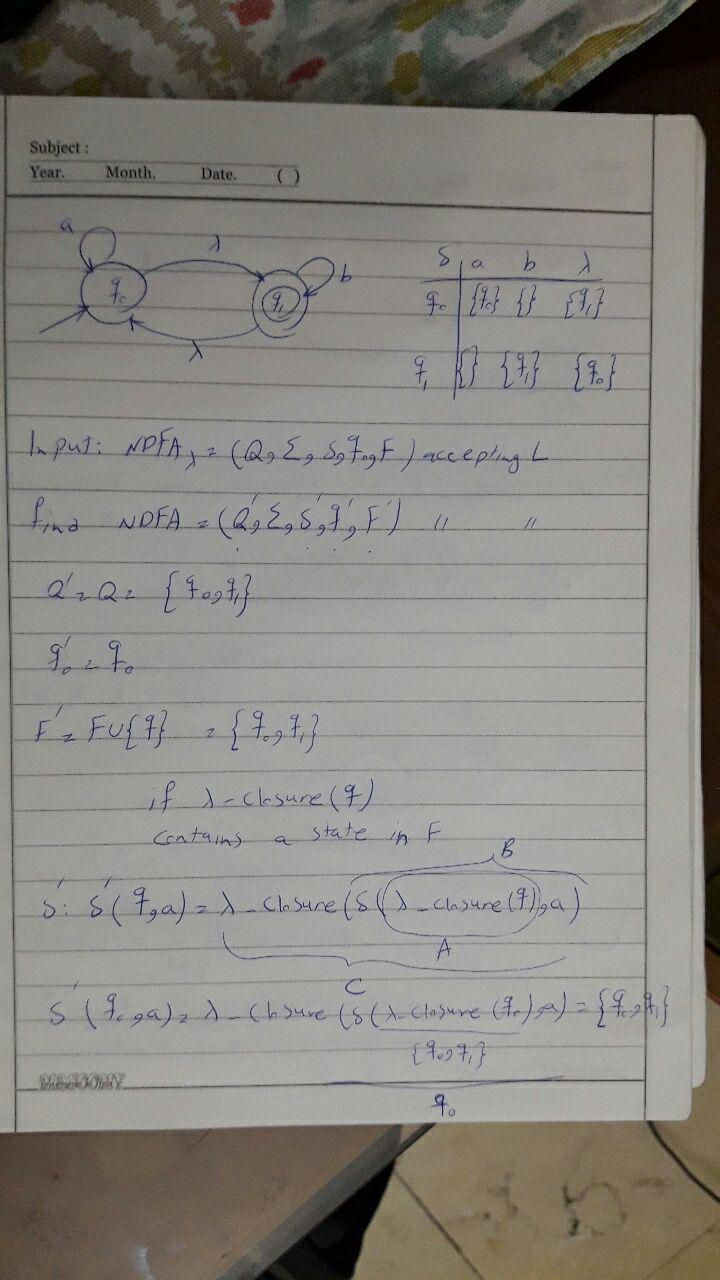 Subject :
Year. Month. Date. ( )
a λ b
q₀ q₁
λ
δ a b λ
q₀ {q₀} {} {q₁}
q₁ {} {q₁} {q₀}
Input: NDFAλ = (Q, Σ, δ, q₀, F) accepting L
find NDFA = (Q', Σ, δ', q', F') " "
Q' = Q = {q₀, q₁}
q'₀ = q₀
F' = F∪{q} = {q₀, q₁}
if λ-closure(q)
contains a state in F
B
δ': δ'(q, a) = λ-closure(δ(λ-closure(q), a)
A
C
δ'(q₀, a) = λ-closure(δ(λ-closure(q₀), a) = {q₀, q₁}
{q₀, q₁}
q₀